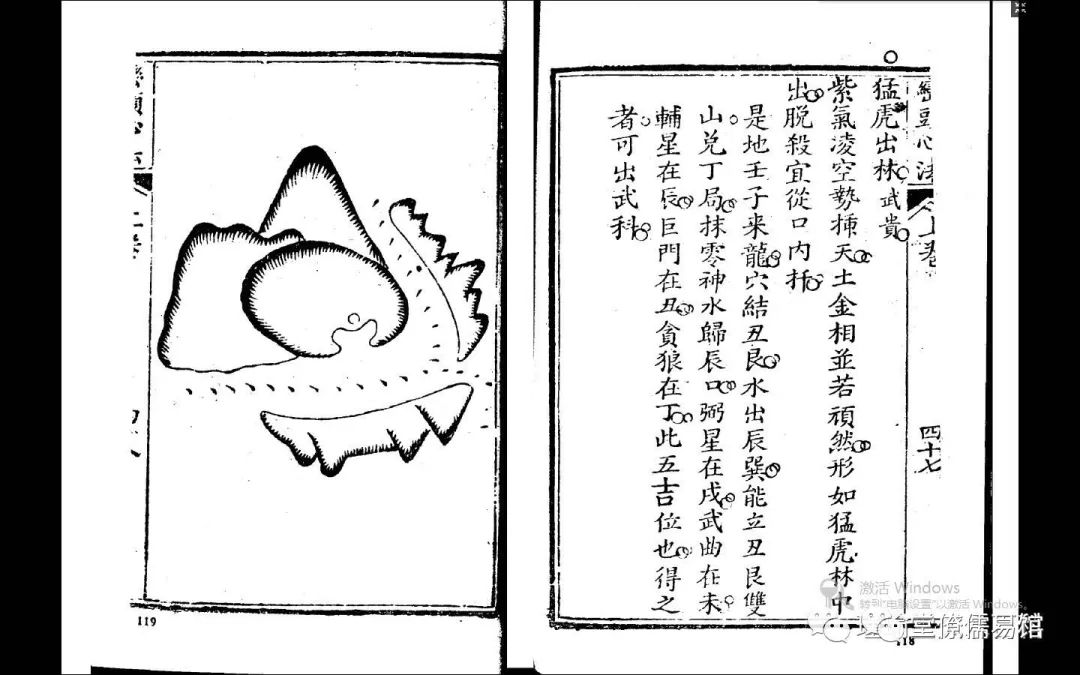 猛虎出林武貴
紫氣凌空勢插天土金相並若頑然形如猛虎林中
出脫殺宜從口內扦
是地壬子来龍穴結丑艮水出辰巽能立丑艮雙
山兌丁局抹零神水歸辰口弼星在戌武曲在未
輔星在辰巨門在丑貪狼在丁此五吉位也得之
者可出武科
心法
上卷
四十七
118
119
激活 Windows
转到"电脑设置"以激活 Windows。
儒易馆